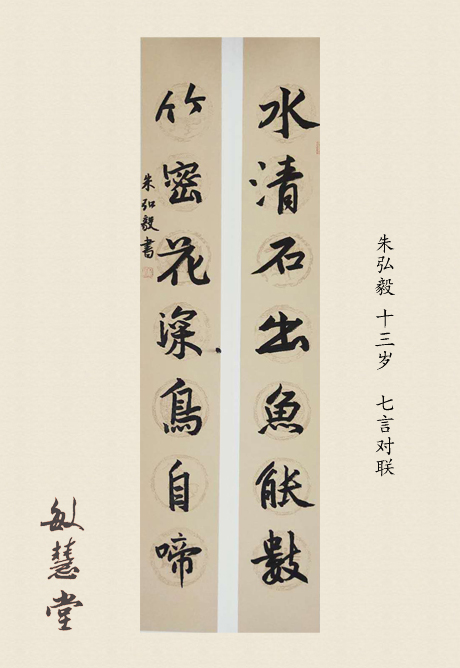 水清石出魚能數
竹密花深鳥自啼
朱弘毅書
朱弘毅 十三岁 七言对联
敏慧堂